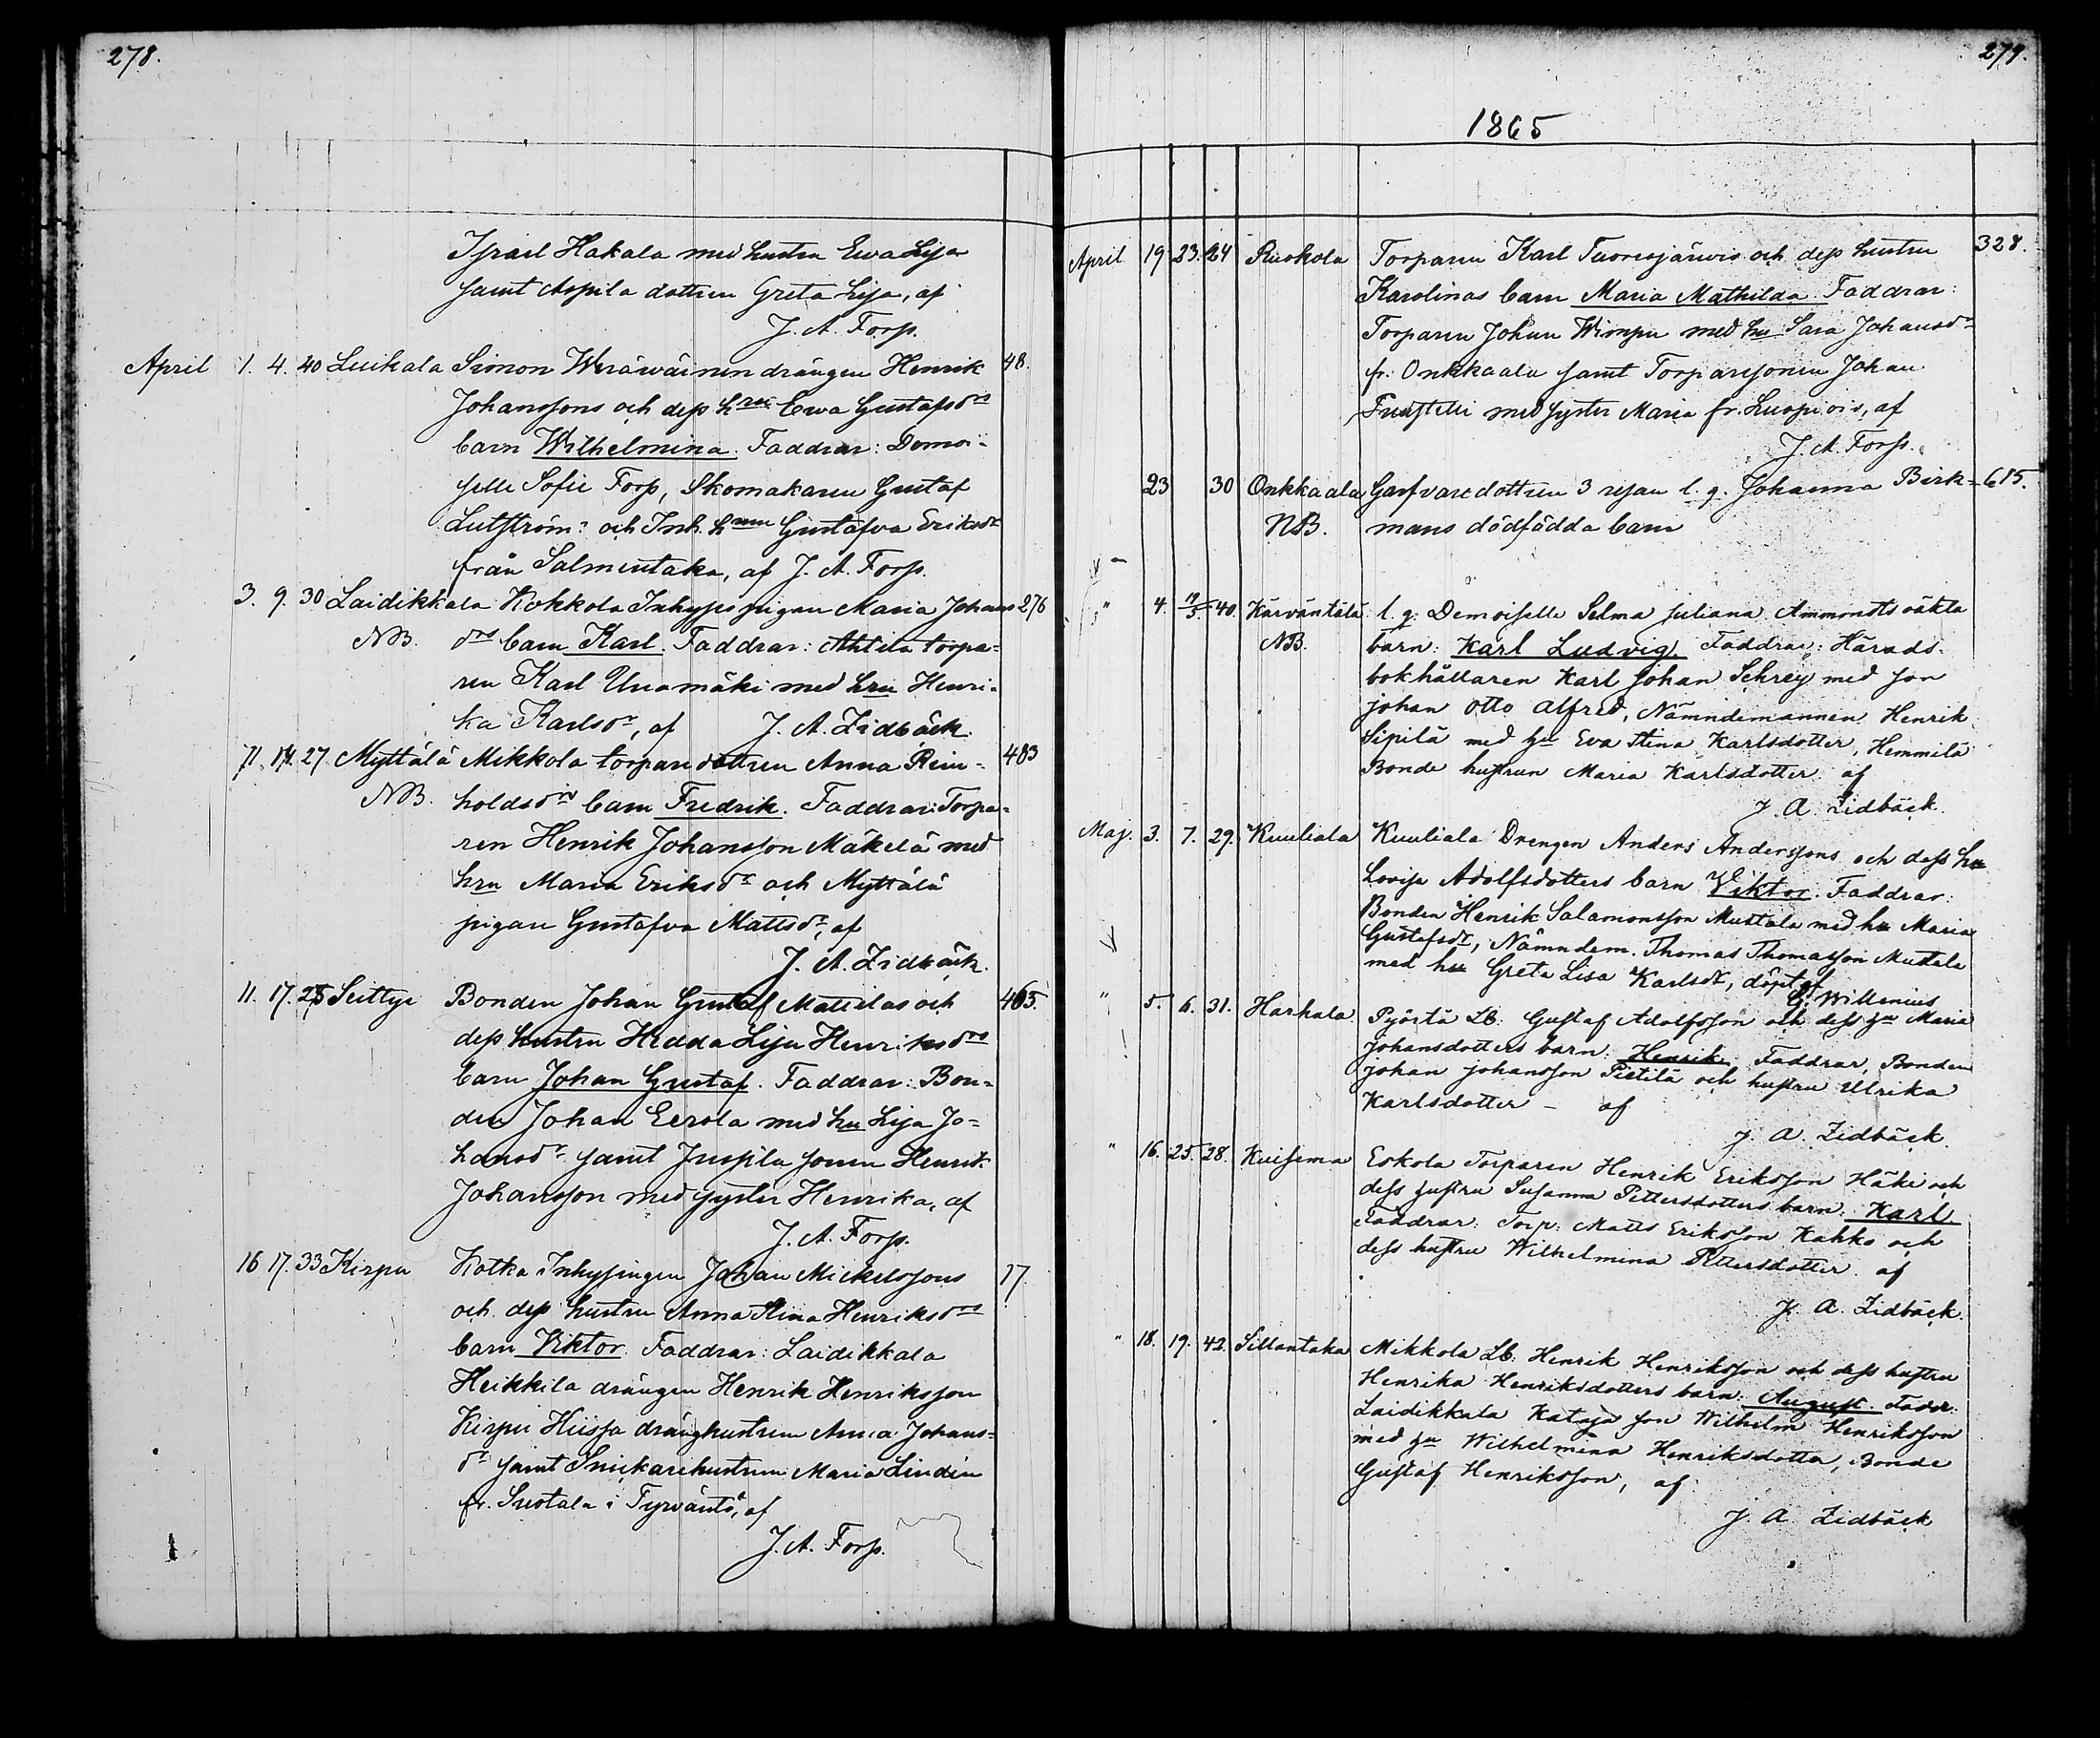 278.
Israel Hakala med hustru Ewa Lisa
samt Aspila dottren Greta Lisa, af
J. A. Forss.
April 1. 4. 40 Luikala Simon Weräwäinen drängen Henrik 48.
Johanssons och dess hrus Ewa Gustafsdrs
barn Wilhelmina. Faddrar: Demoi-
selle Sofie Forss, Skomakaren Gustaf
Lutström: och Inh. hrun Gustafva Eriksdr
från Salmentaka, af J. A. Forss.
3. 9. 30 Laidikkala Kokkola Inhyses pigan Maria Johans 276
NB. drs barn Karl. Faddrar: Ahtila torpa-
ren Karl Unamäki med hru Henri-
ka Karlsdr, af J. A. Zidbäck.
11. 17. 27 Myttälä Mikkola torpare dottren Anna Rein- 483
NB. holdsdrs barn Fredrik. Faddrar: Torpa-
ren Henrik Johansson Mäkelä med
hru Maria Eriksdr och Myttälä
pigan Gustafva Mattsdr, af
J. A. Zidbäck.
11. 17. 25 Seittye Bonden Johan Gustaf Mattilas och 465.
dess hustru Hedda Lisa Henriksdrs
barn Johan Gustaf. Faddrar: Bon-
den Johan Eerola med hu Lisa Jo-
hansdr samt Juspila sonen Henrik
Johansson med syster Henrika, af
J. A. Forss.
16 17. 33 Kirpu Kotka Inhysingen Johan Mickelssons 17.
och dess hustru Anna Stina Henriksdrs
barn Viktor. Faddrar: Laidikkala
Heikkila drängen Henrik Henriksson
Kirpu Hiissa dränghustrun Anna Johans-
dr samt Snickarehustrun Maria Lindén
fr. Suotala i Tyrväntö, af
J. A. Forss.
279.
1865
April 19 23. 24 Ruokola Torparen Karl Tuoresjärwis och dess hustru 328.
Karolinas barn Maria Mathilda. Faddrar:
Torparen Johan Wimpu med hu Sara Johansdr
fr. Onkkaala samt Torparesonen Johan
med syster Maria fr. Luopiois, af
J. A. Forss.
23 30 Onkkaala Garfvare dottren 3 resan l. g. Johanna Birk- 615.
NB. mans dödfödda barn
" 4. 7/5. 40. Kärväntälä l. g. Demoiselle Selma Juliana Ammondts oäkta
NB. barn: Karl Ludvig. Faddrar: Härads-
bokhållaren Karl Johan Schrey med son
Johan Otto Alfred, Nämndemannen Henrik
Sipilä med hu Eva Stina Karlsdotter, Hemmilä
Bonde hustrun Maria Karlsdotter. af
J. A. Zidbäck.
Maj. 3. 7. 29. Kuuliala Kuuliala Drengen Anders Anderssons och dess hu
Lovisa Adolfsdotters barn Viktor. Faddrar:
Bonden Henrik Salamonsson Mustala med hu Maria
Gustafsdr, Nämndem. Thomas Thomasson Mustala
med hu Greta Lisa Karlsdr, döpt af
G. Willenius
" 5. 6. 31. Harhala Pyörtä Lb: Gustaf Adolfsson och dess hu Maria
Johansdotters barn: Henrik. Faddrar, Bonden
Johan Johansson Pietilä och hustru Ulrika
Karlsdotter – af
J. A. Zidbäck.
" 16. 25. 28. Kuisema Eskola Torparen Henrik Eriksson Häki och
dess hustru Susanna Pettersdotters barn: Karl
Faddrar: Torp: Matts Eriksson Kahko och
dess hustru Wilhelmina Pettersdotter. af
J. A. Zidbäck.
" 18. 19. 42. Sillantaka Mikkola Lb: Henrik Henriksson och dess hustru
Henrika Henriksdotters barn: August. Faddr:
Laidikkala Kataja son Wilhelm Henriksson
med hu Wilhelmina Henriksdotter, Bonde
Gustaf Henriksson, af
J. A. Zidbäck